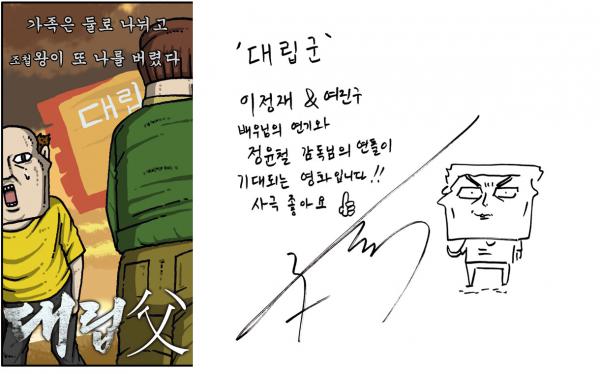 가족은 둘로 나뉘고
조철왕이 또 나를 버렸다
대립
대립父
'대립군'
이정재 & 여진구
배우님의 연기와
정윤철 감독님의 연출이
기대되는 영화입니다!!
사극 좋아요